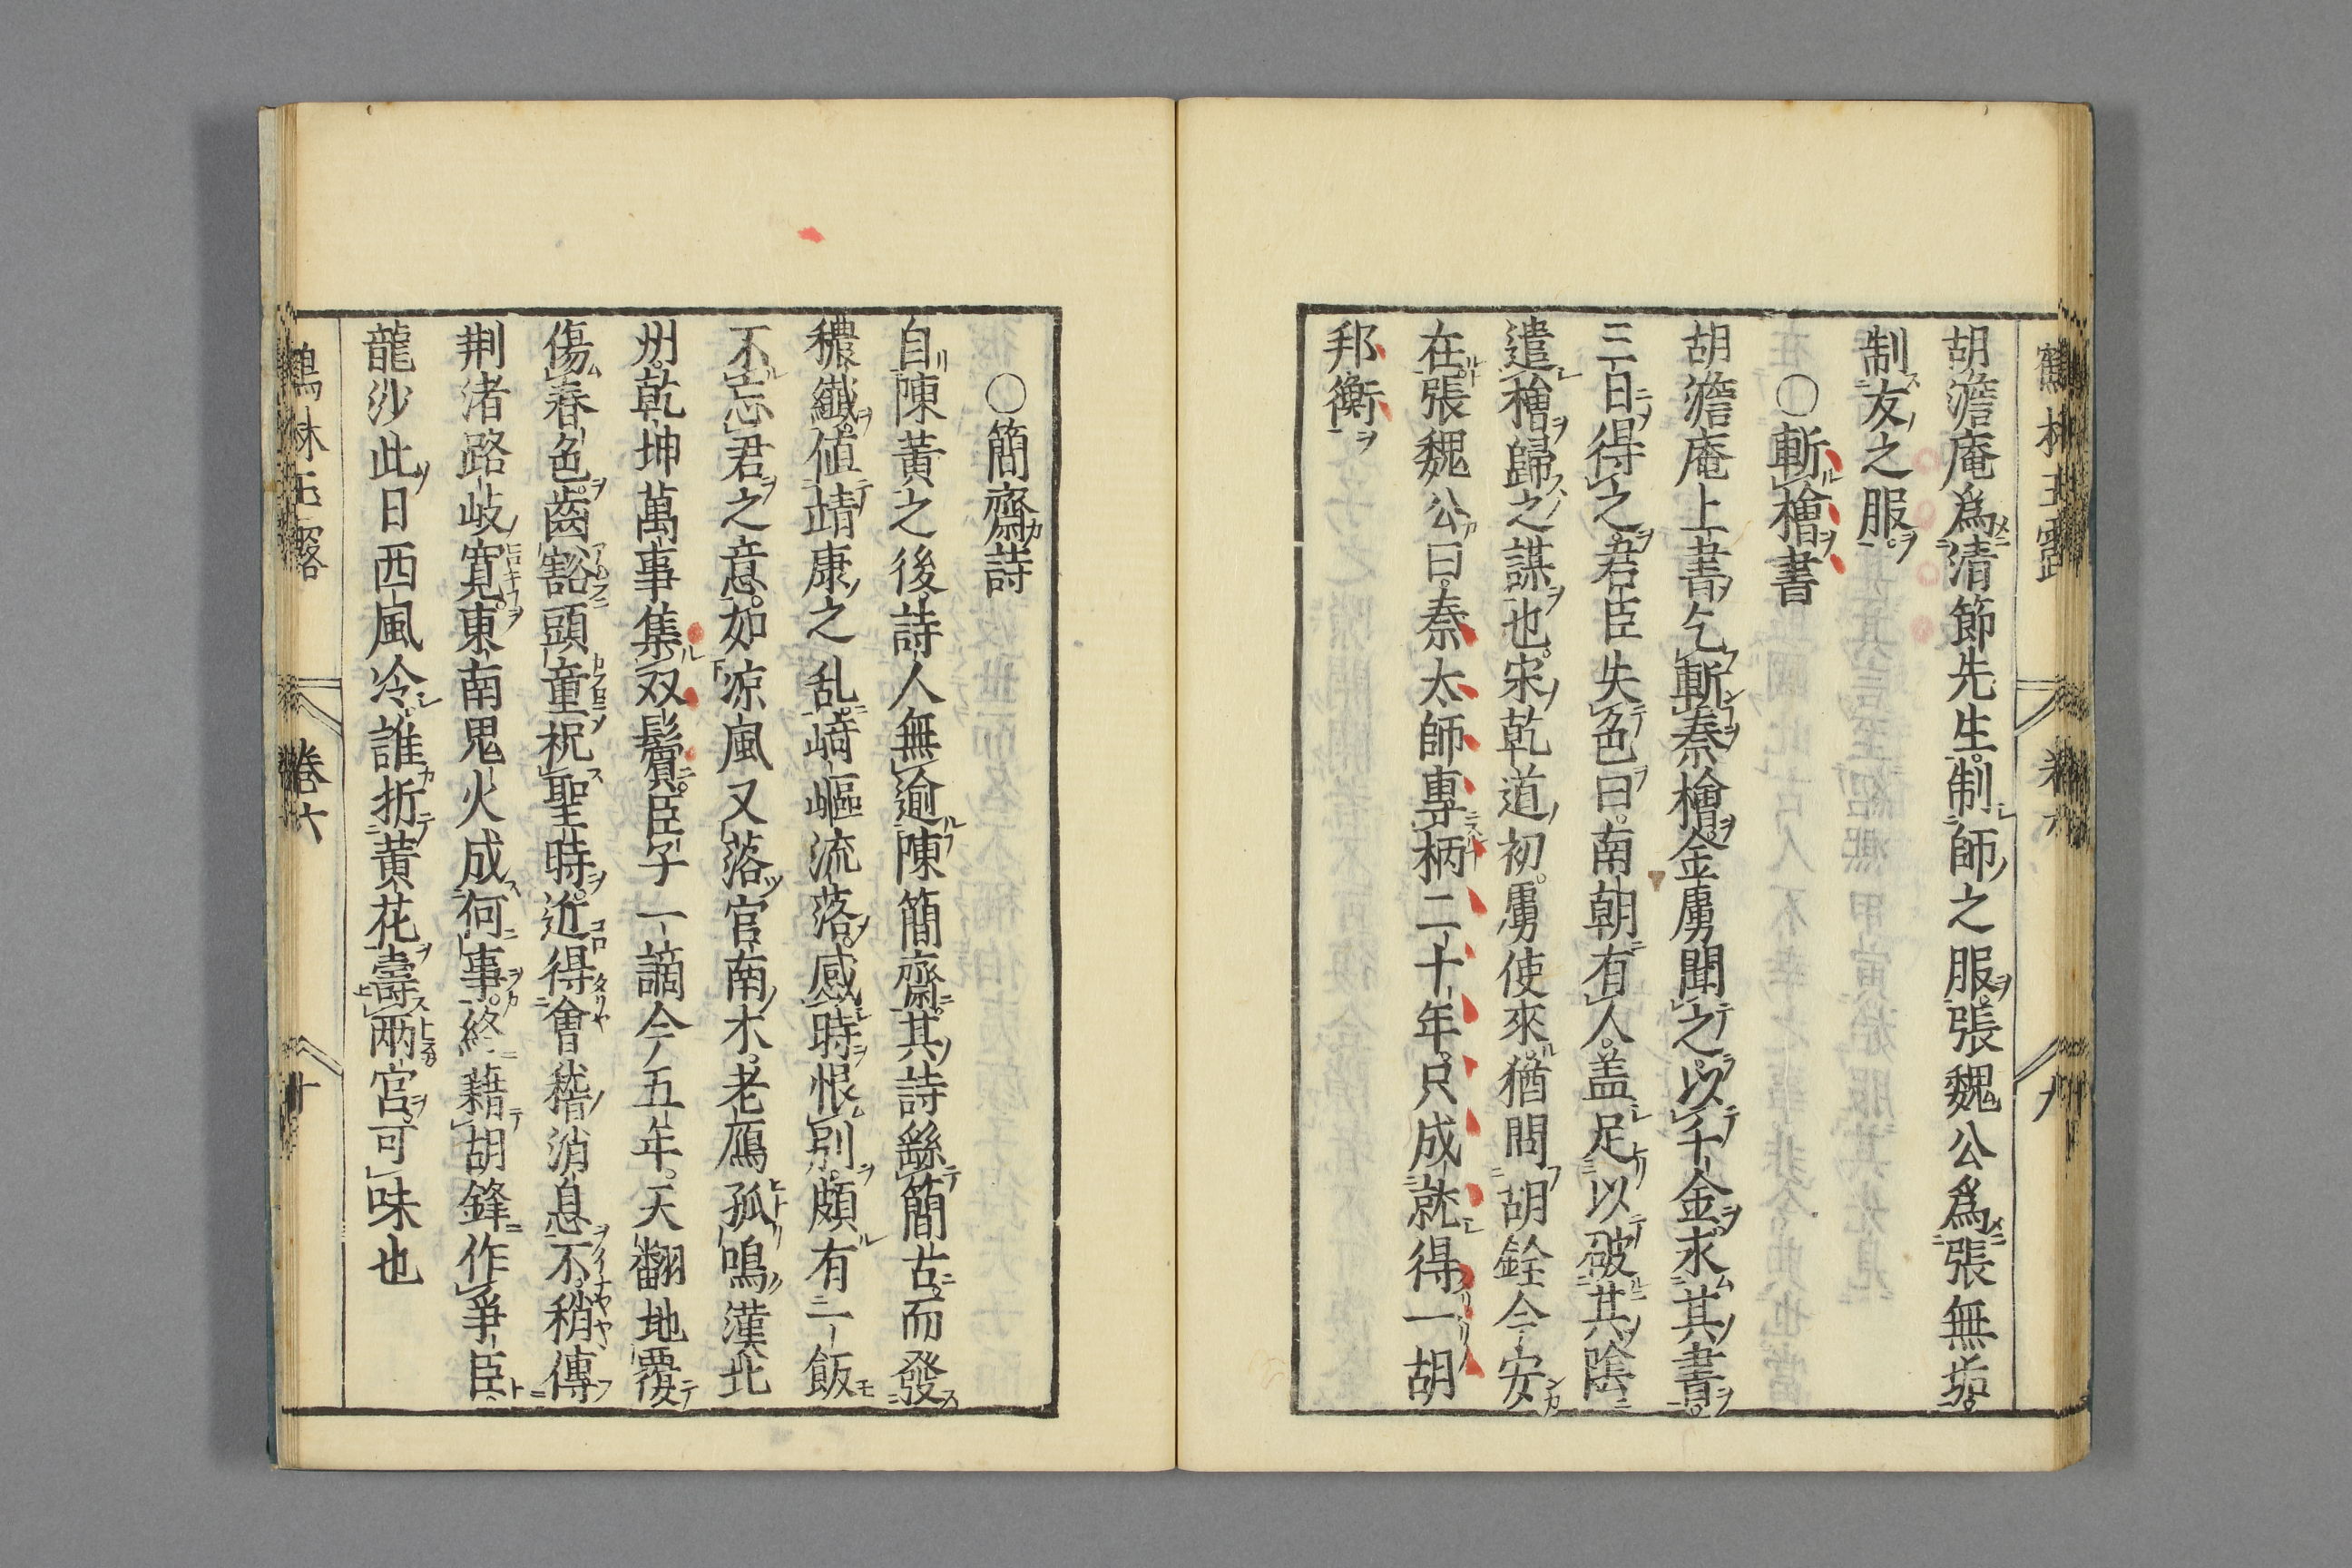 胡澹庵爲清節先生制師之服張魏公爲張無垢
制友之服
○斬檜書
胡澹庵上書乞斬秦檜金虜聞之以千金求其書
三日得之君臣失色曰南朝有人盖足以破其陰
遣檜歸之謀也宋乾道初虜使來猶問胡銓今安
在張魏公曰秦太師專柄二十年只成就得一胡
邦衡
鶴林玉露 卷六 九
○簡齋詩
自陳黃之後詩人無逾陳簡齋其詩繇簡古而發
穠纖值靖康之乱崎嶇流落感時恨別頗有一飯
不忘君之意如凉風又落官南木老鴈孤鳴漢北
州乾坤萬事集双鬢臣子一謫今五年天翻地覆
傷春色齒豁頭童祝聖時近得會稽消息不稍傳
荆渚路岐寬東南鬼火成何事終藉胡鋒作爭臣
龍沙此日西風冷誰折黄花壽兩宮可味也
鶴林玉露 卷六 十